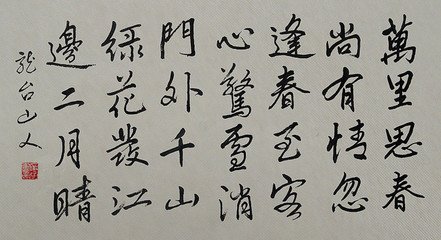 萬里思春
尚有情忽
逢春至客
心驚雪消
門外千山
綠花發江
邊二月晴
龍台山人